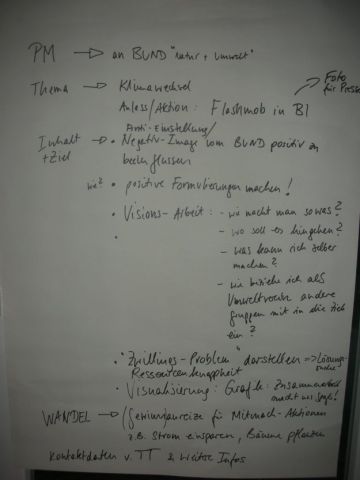 PM → an BUND "natur + Umwelt"
Foto für Presse
Thema → Klimawechsel
Anlass/Aktion: Flashmob in BI
Anti-Einstellung/
Inhalt + Ziel → • Negativ-Image vom BUND positiv
beeinflussen
wie? • positive Formulierungen machen!
• Visions-Arbeit: - wie macht man sowas?
• - wo soll es hingehen?
- was kann ich selber
machen?
- wie beziehe ich als
Umweltverein andere
gruppen mit in die
ein?
• "Zwillings-Problem" darstellen => Lösungs-
Ressourcenknappheit
• Visualisierung: Grafik: Zusammenarbeit
macht uns
WANDEL → /Gewinnanreize für Mitmach-Aktionen
z.B. Strom einsparen, Bäume pflanzen
Kontaktdaten v. TT & weitere Infos